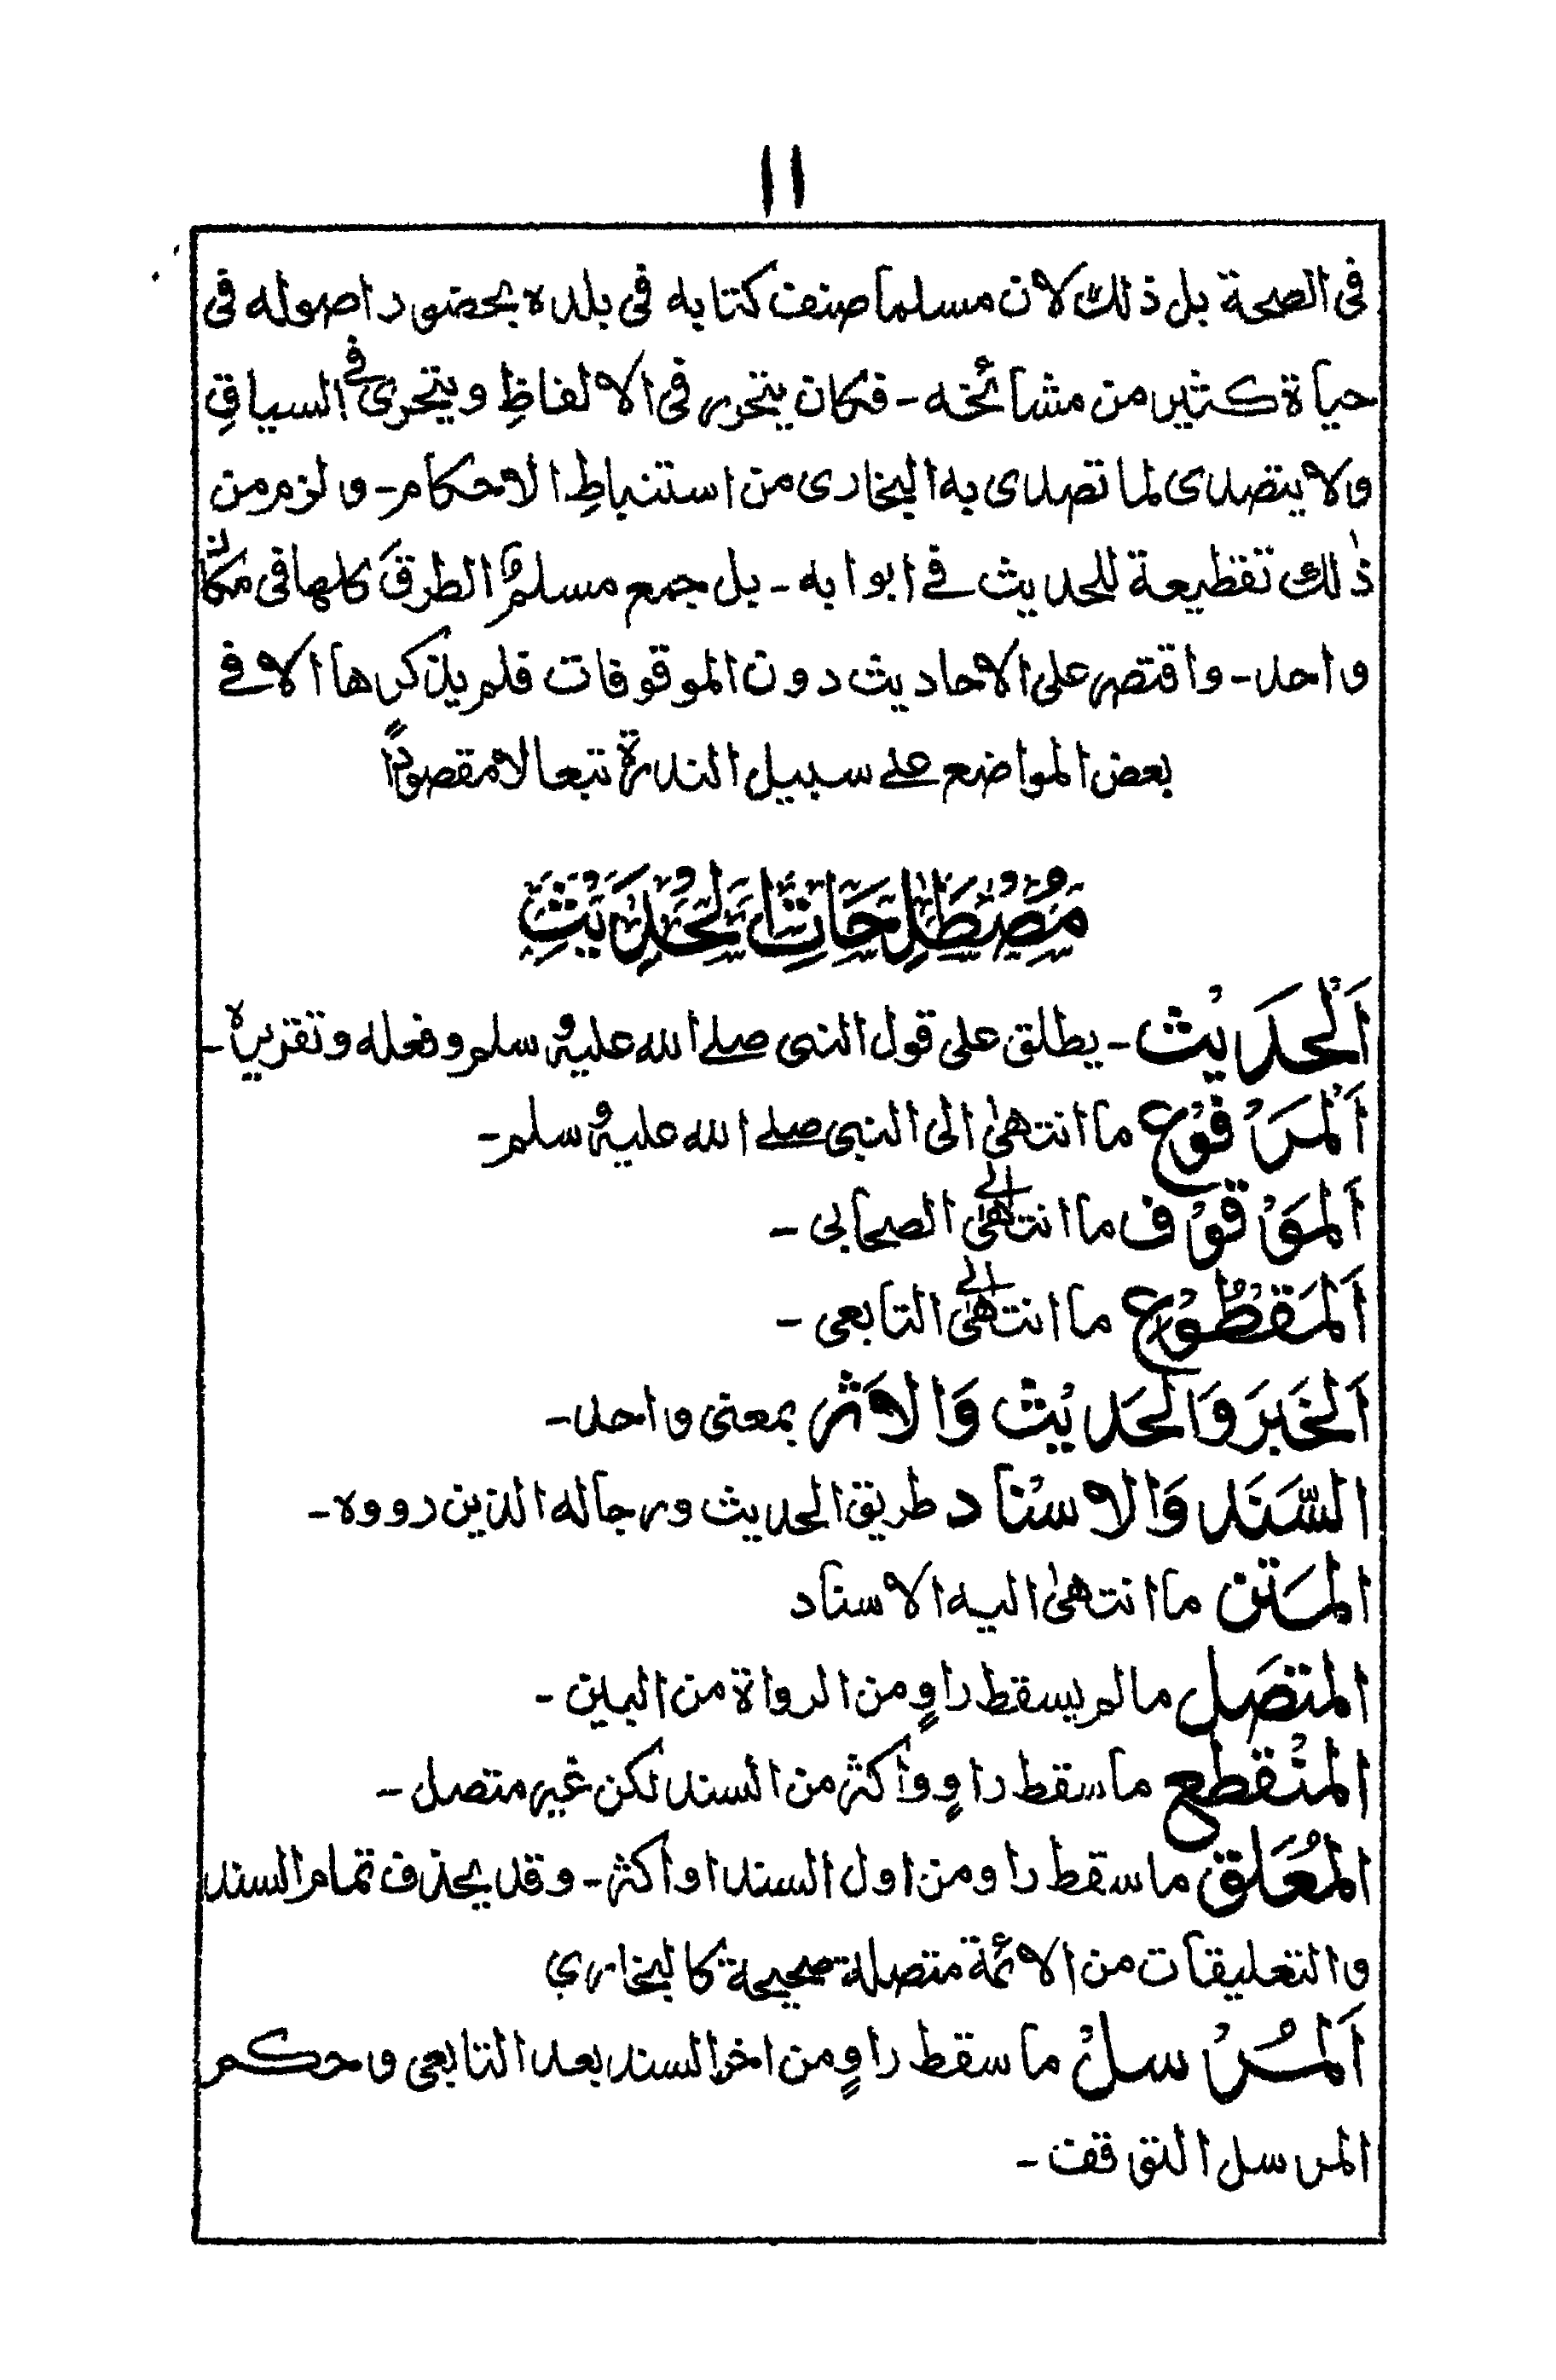 ۱۱
فی الصحة بل ذلك لان مسلما صنف کتابه فی بلده بحضور اصوله فی
حیاة کثیر من مشائخه - فکان یتحرر فی الالفاظِ ویتحری فی السیاقِ
ولا یتصدی لما تصدی به البخاری من استنباطِ الاحکام - ولزم من
ذٰلك تقطیعة للحدیث فے ابوابه - بل جمع مسلمؒ الطرقَ کلها فی مکانٍ
واحد - واقتصر علی الاحادیث دون الموقوفات فلم یذکرها الا فے
بعض المواضع علے سبیل الندرة تبعا لا مقصودًا
مُصْطَلِحَاتُ الْحَدِیْثِ
اَلْحَدِیْث - یطلق علی قول النبی صلے الله علیه وسلم وفعله وتقریره -
اَلْمَرْفُوْع ما انتهیٰ الی النبی صلے الله علیه وسلم -
اَلمَوْقُوْف ما انتهیٰ الے الصحابی -
اَلمَقْطُوْع ما انتهیٰ الے التابعی -
اَلخَبَر وَالحَدیْث وَالاَثر بمعنی واحد -
السَّنَد وَالاسْناد طریق الحدیث ورجاله الذین رووه -
المَتن ما انتهیٰ الیه الاسناد
المتصَل مالم یسقط راوٍ من الرواة من البین -
المنْقطع ما سقط راوٍ واکثر من السند لکن غیر متصل -
المُعَلق ما سقط راو من اول السند او اکثر - وقد یحذف تمام السند
والتعلیقات من الائمة متصلة صحیحة کالبخاري
اَلمُرْسلْ ما سقط راوٍ من اخر السند بعد التابعی وحکم
المرسل التوقف -